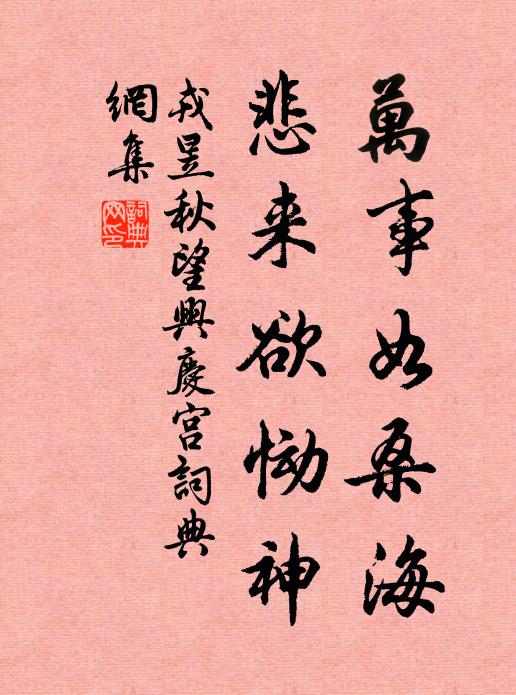 萬事如桑海
悲来欲恸神
戎昱秋望興慶宫詞典
網集
詞典
网印